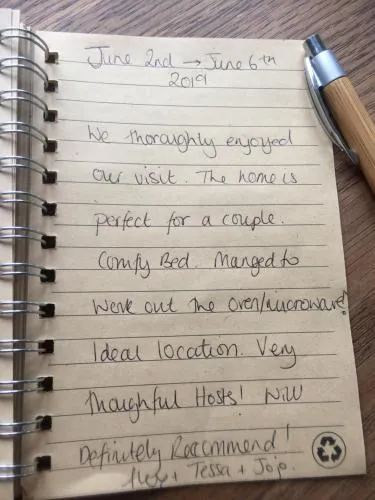 June 2nd → June 6th
2019
We thoroughly enjoyed
our visit. The home is
perfect for a couple.
Comfy Bed. Manged to
work out the oven/microwave!
Ideal location. Very
thoughful Hosts! Will
Definitely Reccmmend!
+ Tessa + Jojo.